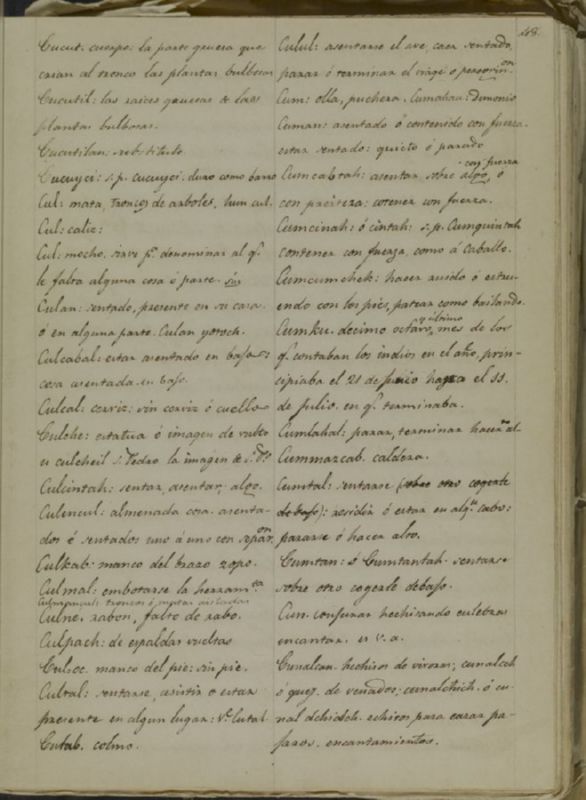 48.
Cucut: cuerpo: la parte gruesa que
crian al tronco las plantas bulbosas
Cucutil: las raices gruesas de las
plantas bulbosas.
Cucutilan:
Cucuyci: s.p. cucuyci: duro como barro
Cul: mata, troncos de arboles, hun cul.
Cul: caliz:
Cul: mocho. sirve pa. denominar al q.
le falta alguna cosa ó parte. sin
Culan: sentado, presente en su casa
ó en alguna parte. Culan yotoch.
Culcabal: estar asentado en bajo
cosa asentada en bajo.
Culcal: cerviz: sin cerviz ó cuello
Culche: estatua ó imagen de vulto
u culcheil S. Pedro la imagen de S. Po.
Culcintah: sentar, asentar, algo.
Culencul: almenada cosa. asenta-
dos ó sentados uno á uno con separon.
Culkab: manco del brazo zopo.
Culmal: embotarse la herramta.
Culne. rabon, falto de rabo.
Culpach: de espaldas vueltas
Culoc. manco del pie: sin pie.
Cultal: sentarse, asistir o estar
presente en algun lugar: Ve. Cutal
Cutab. colmo.
Culul: asentarse el ave, caer sentado,
parar ó terminar el viage ó peregrinon.
Cum: olla, puchera. Cumahau: Demonio
Cuman: asentado ó contenido con fuerza.
estar sentado: quieto ó parado
Cumcabtah: asentar sobre algo, con fuerza ó
con presteza: contener con fuerza.
Cumcinah: ó cintah: s.p. Cumquintah
contener con fuerza, como á caballo.
Cumcumchek: hacer ruido ó estru-
endo con los pies, patear como bailando.
Cumku. decimo octavo, y ultimo mes de los
q. contaban los indios en el año, prin-
cipiaba el 21 de junio hasta el 11.
de Julio. en q. terminaba.
Cumlahal: parar, terminar hacer al-
Cummazcab. caldera.
Cumtal: sentarse (sobre otro cogerle
debajo): residir ó estar en algn. cabo:
pararse ó hacer alto.
Cumtan: ó Cumtantah. sentarse
sobre otro cogerle debajo.
Cun. conjurar hechizando culebras
encantar. es v. a.
Cunalcan. hechizos de vivoras; cunalceh
ó quej. de venados; cunalchich. ó cu-
nal echizos para cazar pa-
jaros. encantamientos.